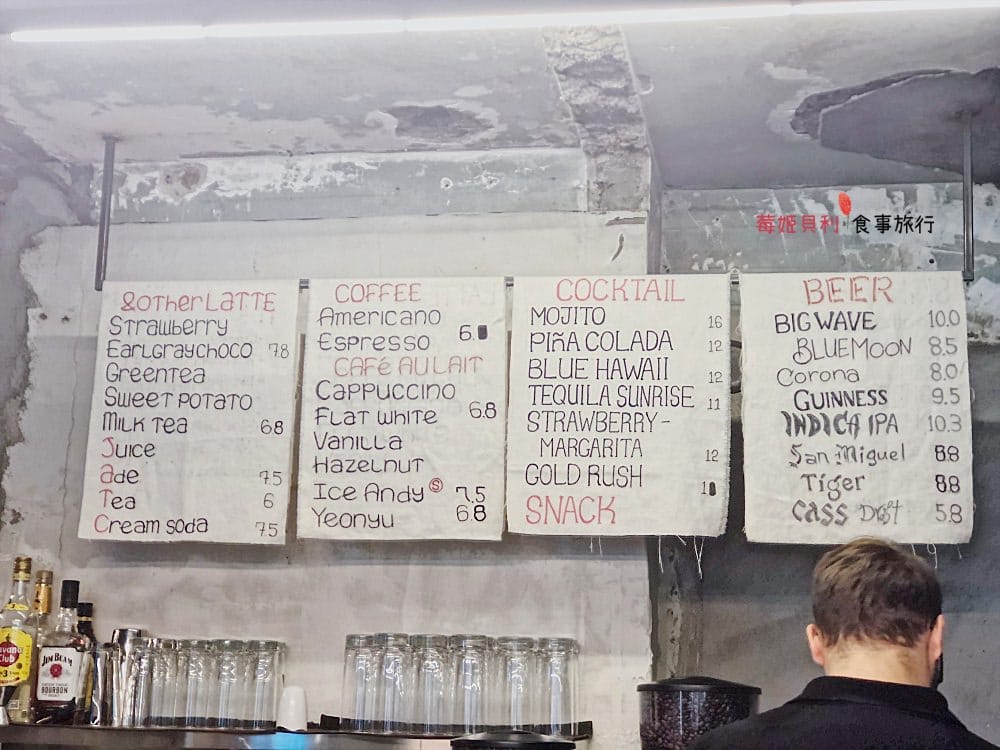 莓姬貝利 食事旅行
&OTHER LATTE
STRAWBERRY
EARLGRAYCHOCO 7.8
GREENTEA
SWEET POTATO
MILK TEA 6.8
JUICE
ADE 7.5
TEA 6
CREAM SODA 7.5
COFFEE
AMERICANO
ESPRESSO 6.
CAFÉ AU LAIT
CAPPUCCINO
FLAT WHITE 6.8
VANILLA
HAZELNUT
ICE ANDY Ⓢ 7.5
YEONYU 6.8
COCKTAIL
MOJITO 16
PIÑA COLADA 12
BLUE HAWAII 12
TEQUILA SUNRISE 11
STRAWBERRY-
MARGARITA 12
GOLD RUSH
SNACK
BEER
BIGWAVE 10.0
BLUEMOON 8.5
Corona 8.0
GUINNESS 9.5
INDICA IPA 10.3
San Miguel 8.8
Tiger 8.8
CASS Draft 5.8
Havana
Club
3
JIM BEAM
BOURBON